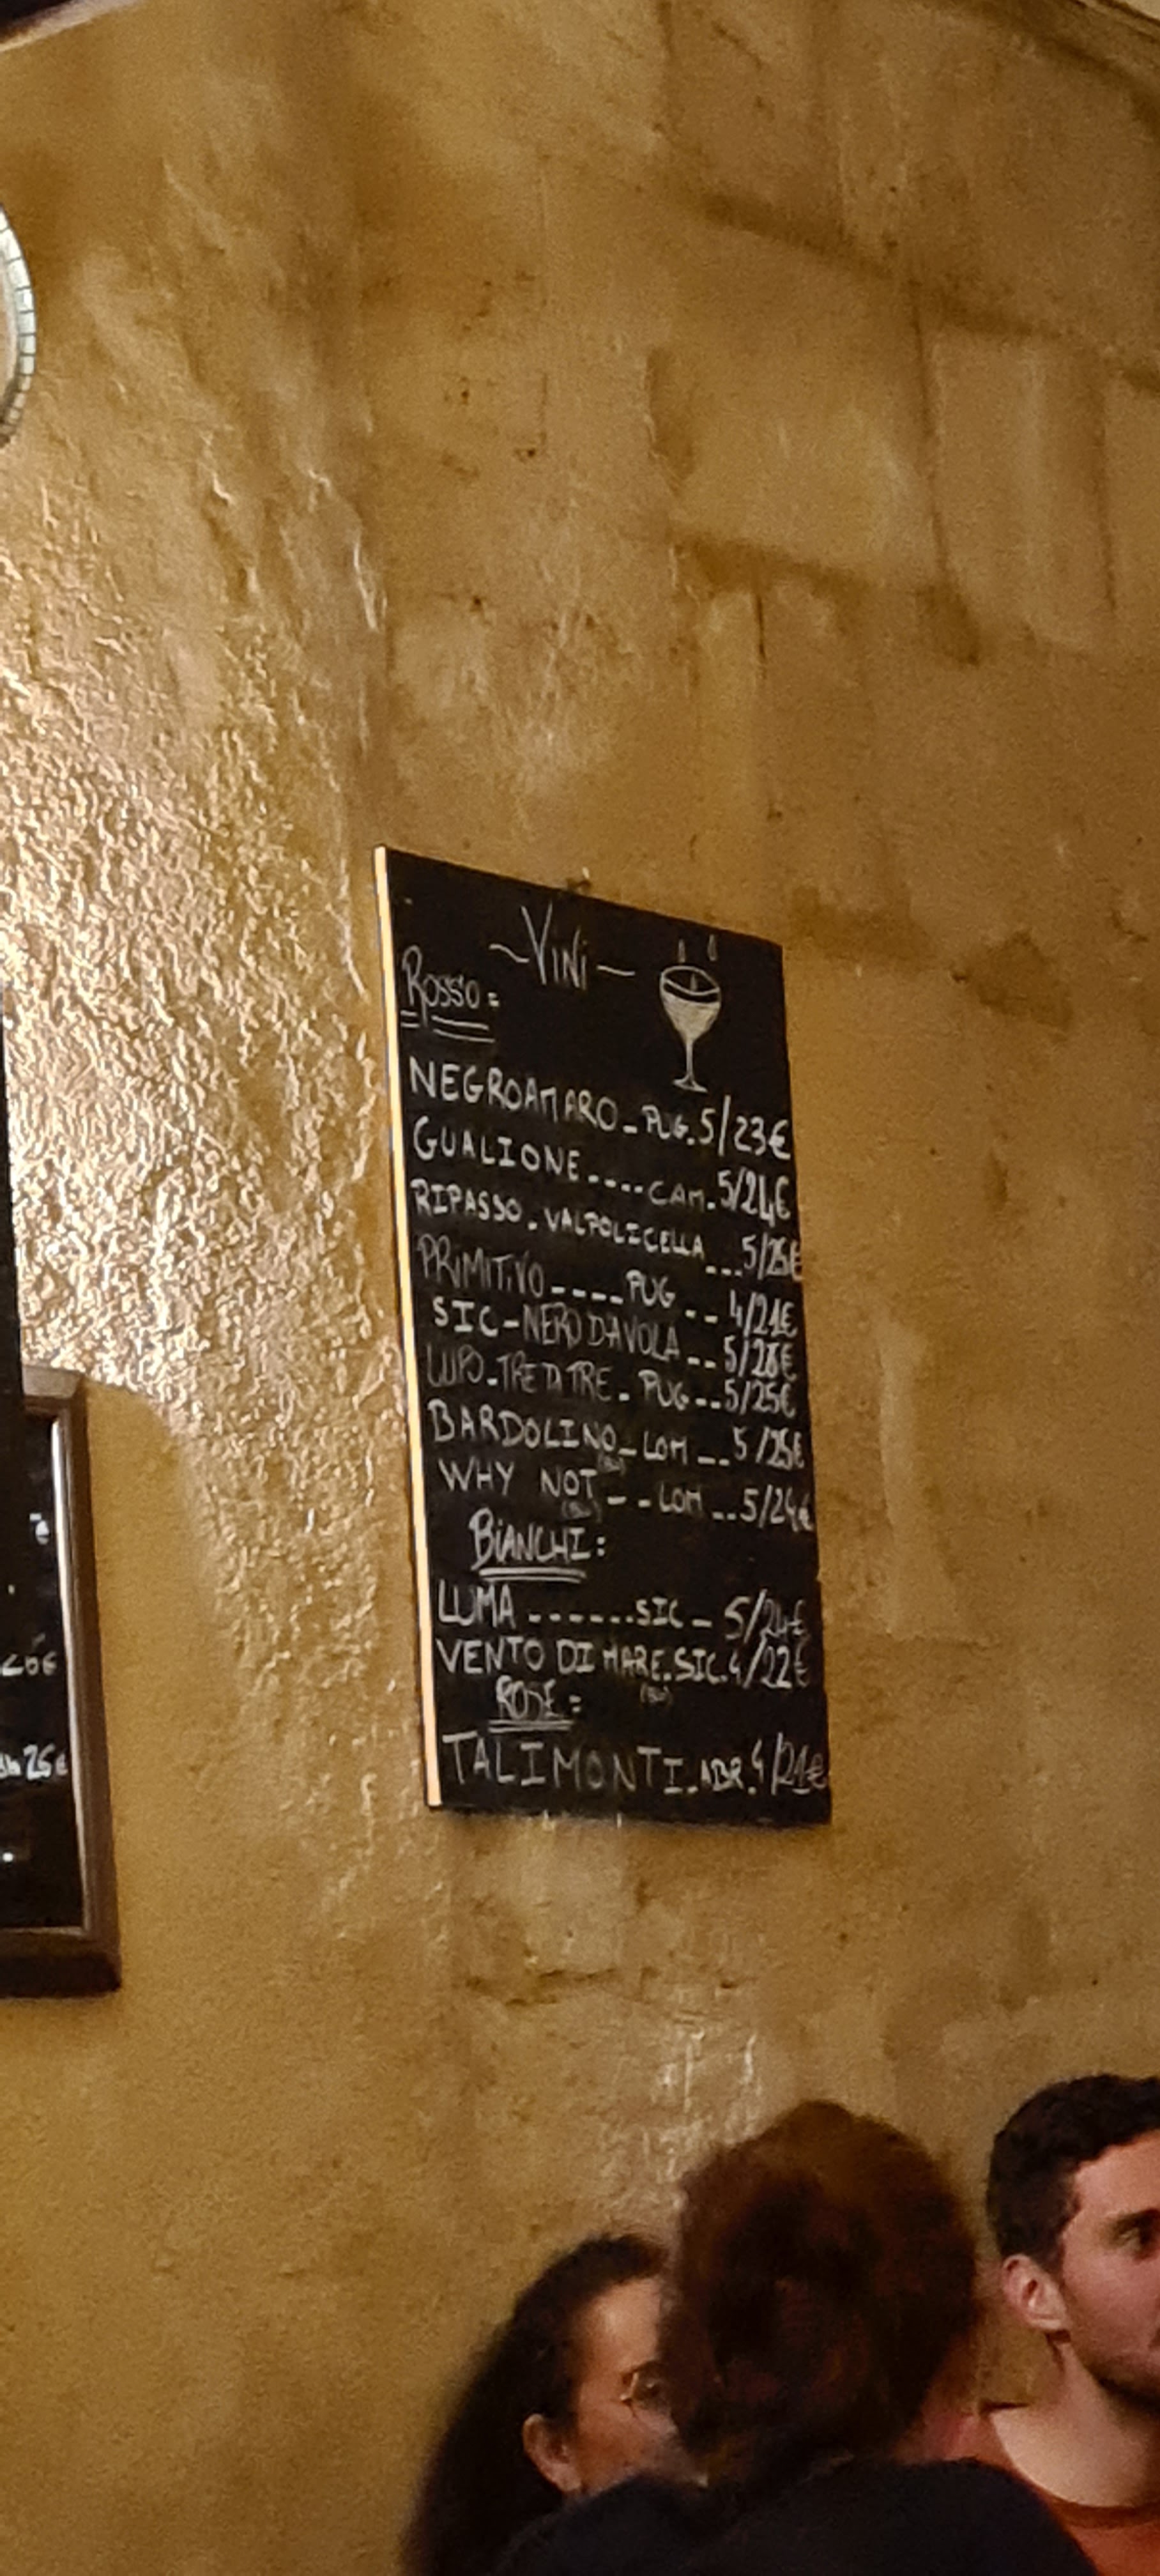 ~Vini~
Rosso:
NEGROAMARO_PUG. 5/23€
GUALIONE....CAM. 5/24€
RIPASSO. VALPOLICELLA...5/25€
PRIMITIVO----PUG -- 4/21€
SIC-NERO DAVOLA -- 5/26€
LUPO_TRE DI TRE_ PUG--5/25€
BARDOLINO_LOM_.. 5/25€
(BIO)
WHY NOT -- LOM .. 5/24€
(BIO)
BIANCHI:
LUMA .......SIC - 5/24€
VENTO DI MARE.SIC.4/22€
(BIO)
ROSE:
TALIMONTI.ABR.4/21€
26€
25€